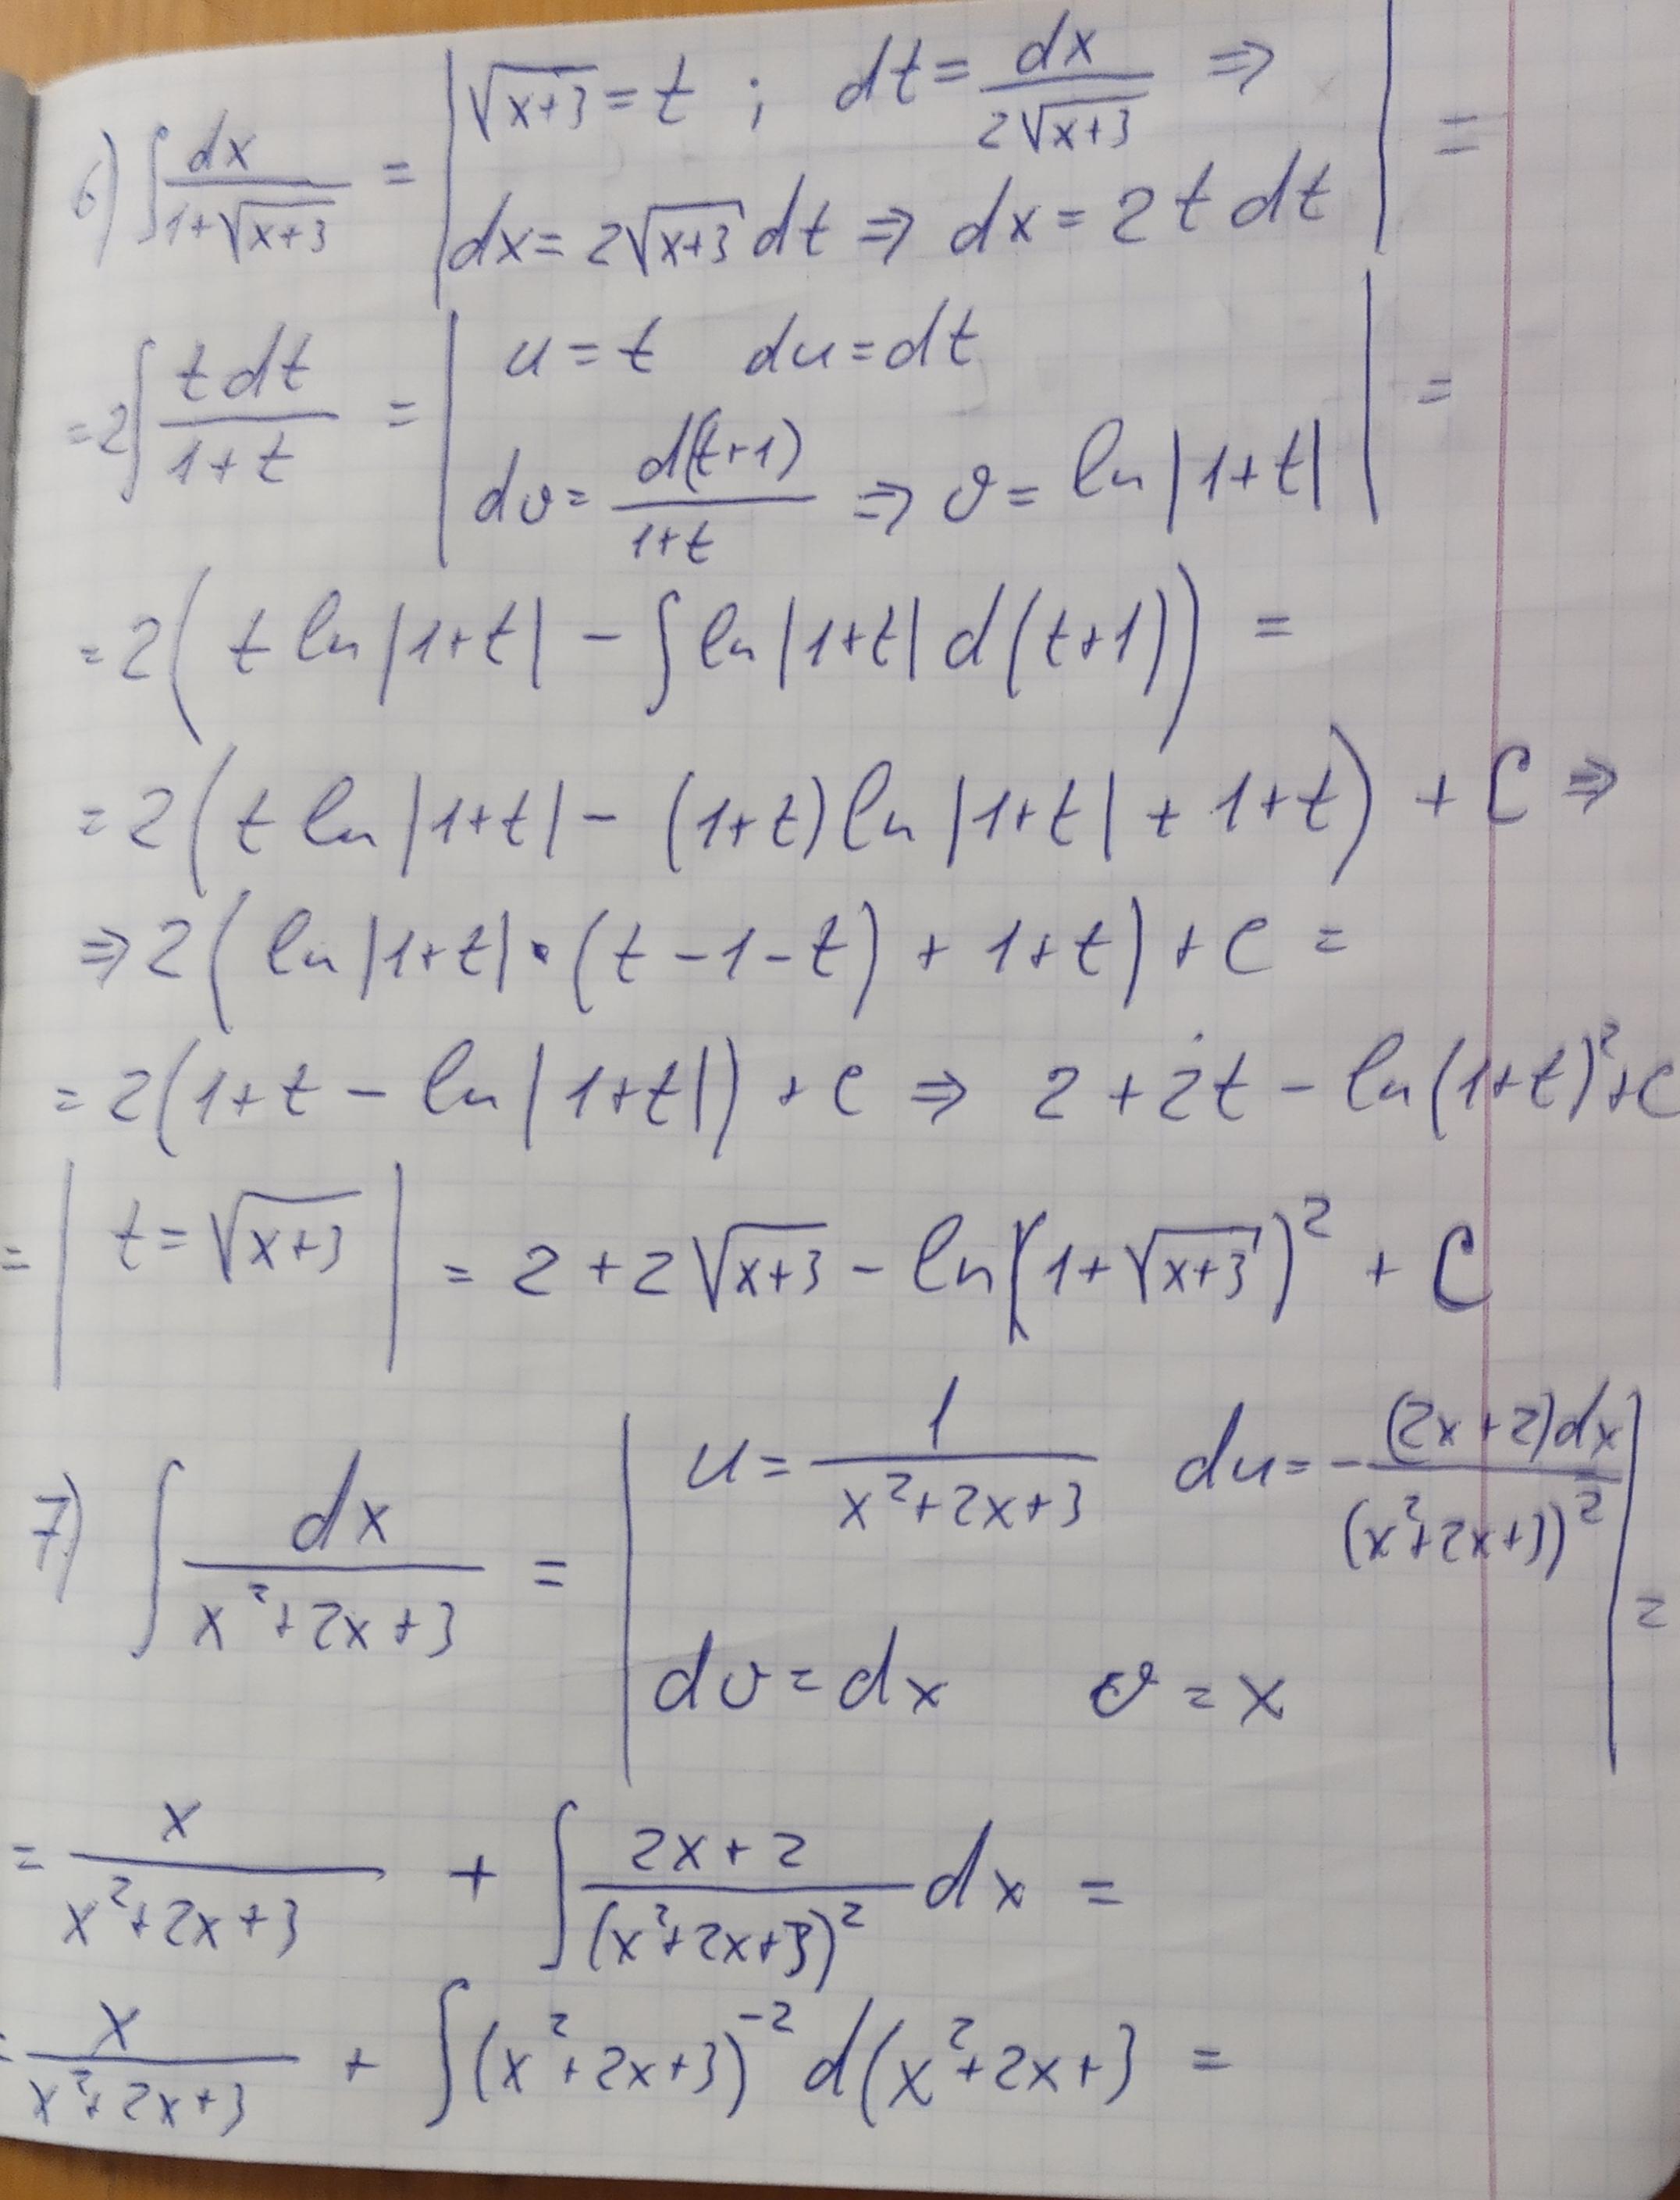 6) ∫ dx / (1+√(x+3)) = | √(x+3) = t ; dt = dx / (2√(x+3)) ⇒
dx = 2√(x+3) dt ⇒ dx = 2 t dt | =
= 2∫ t dt / (1+t) = | u = t du = dt
dv = d(t+1) / (1+t) ⇒ v = ln |1+t| | =
= 2( t ln |1+t| − ∫ ln |1+t| d(t+1)) =
= 2( t ln |1+t| − (1+t) ln |1+t| + 1+t) + C ⇒
⇒ 2( ln |1+t| · (t − 1 − t) + 1+t) + C =
= 2(1+t − ln |1+t|) + C ⇒ 2 + 2t − ln(1+t)² + C
= | t = √(x+3) | = 2 + 2√(x+3) − ln(1+√(x+3))² + C
7) ∫ dx / (x²+2x+3) = | u = 1 / (x²+2x+3) du = − (2x+2)dx / (x²+2x+3)² | =
dv = dx v = x
= x / (x²+2x+3) + ∫ (2x+2) / (x²+2x+3)² dx =
= x / (x²+2x+3) + ∫ (x²+2x+3)⁻² d(x²+2x+3 =